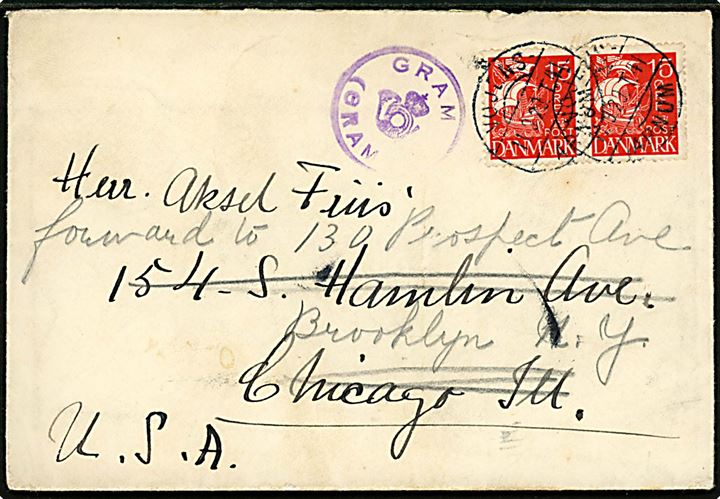 GRAM
(GRAM
15 15
POST POST
DANMARK DANMARK
Herr. Aksel Friis
forward to 130 Prospect Ave
154 - S. Hamlin Ave.
Brooklyn N.Y.
Chicago Ill.
U.S.A.